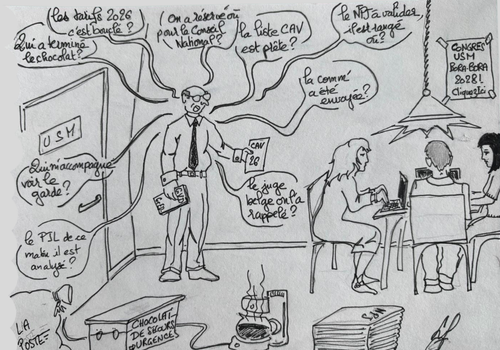 Les tarifs 2026
c'est bouclé ?
Qui a terminé
le chocolat ?
On a réservé où
pour le Conseil
National ?
la liste CAV
est prête ?
le NPJ à valider
il est rangé
où ?
CONGRÈS
USM
BORA-BORA
2028 !
Cliquez ici
la comm
a été
envoyée ?
USM
CAV
26
Qui m'accompagne
voir le
garde ?
le juge
belge on l'a
rappelé ?
le PJL de ce
matin il est
analysé ?
LA
POSTE
CHOCOLAT
DE SECOURS
D'URGENCE
USM